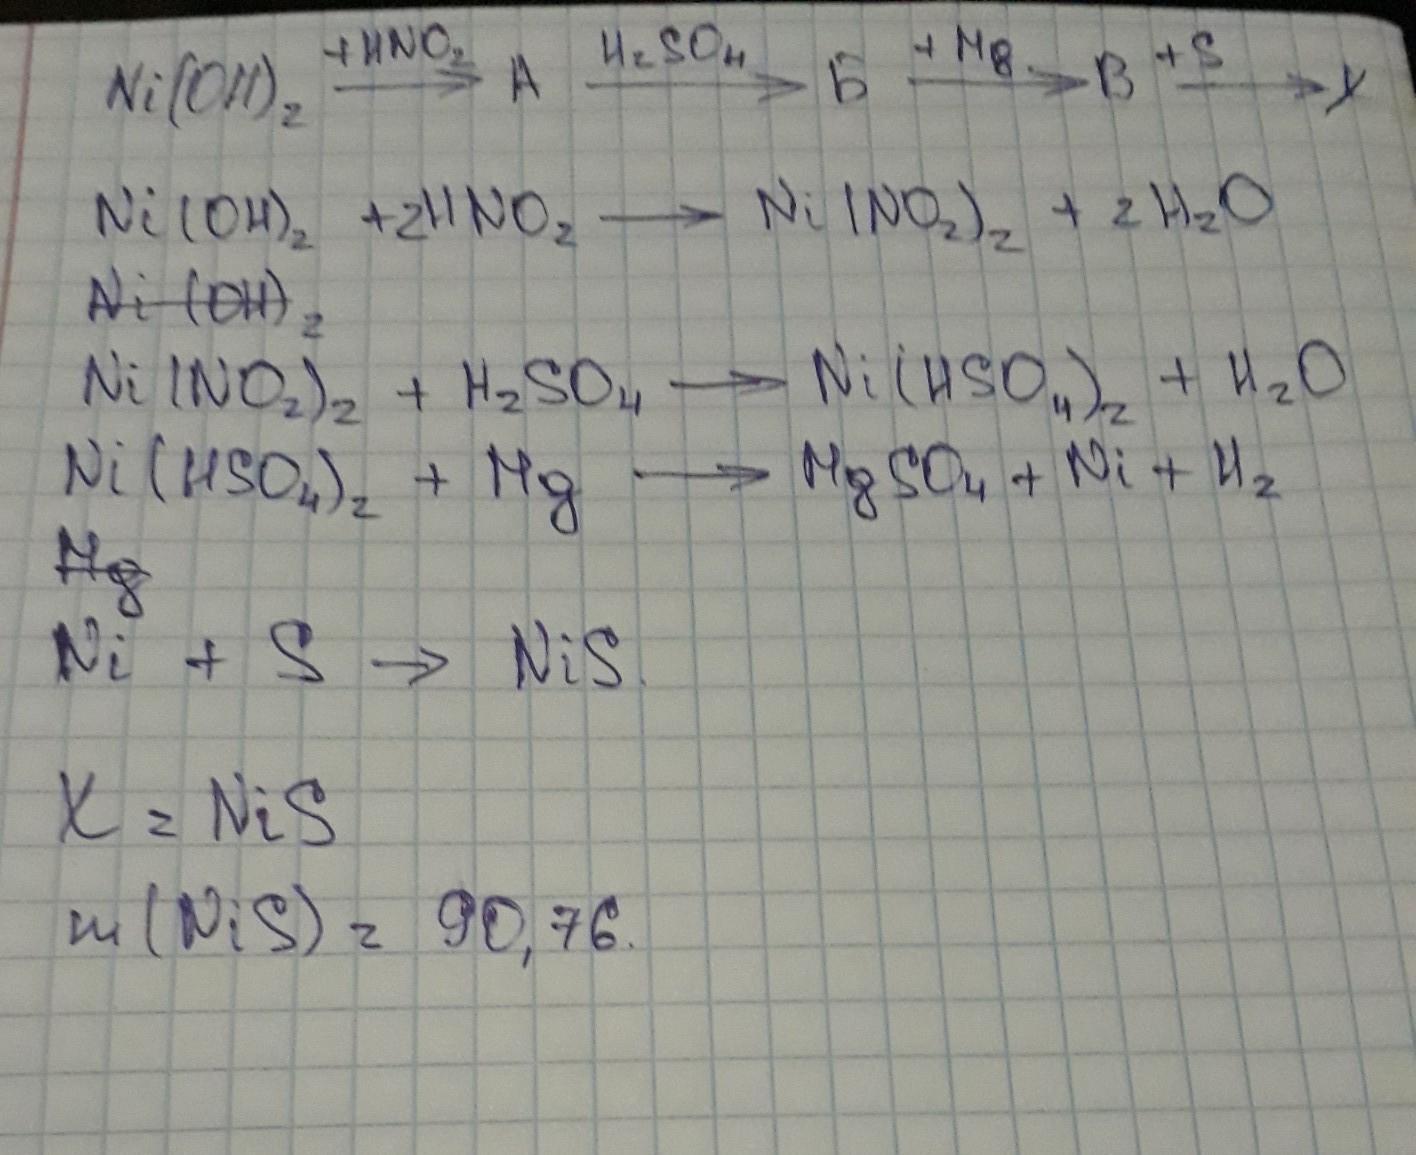 Ni(OH)₂ +HNO₂→ А H₂SO₄→ Б +Mg→ В +S→ X
Ni(OH)₂ +2HNO₂ → Ni(NO₂)₂ + 2H₂O
Ni(OH)₂
Ni(NO₂)₂ + H₂SO₄ → Ni(HSO₄)₂ + H₂O
Ni(HSO₄)₂ + Mg → MgSO₄ + Ni + H₂
Mg
Ni + S → NiS.
X = NiS
m(NiS) = 90,76.